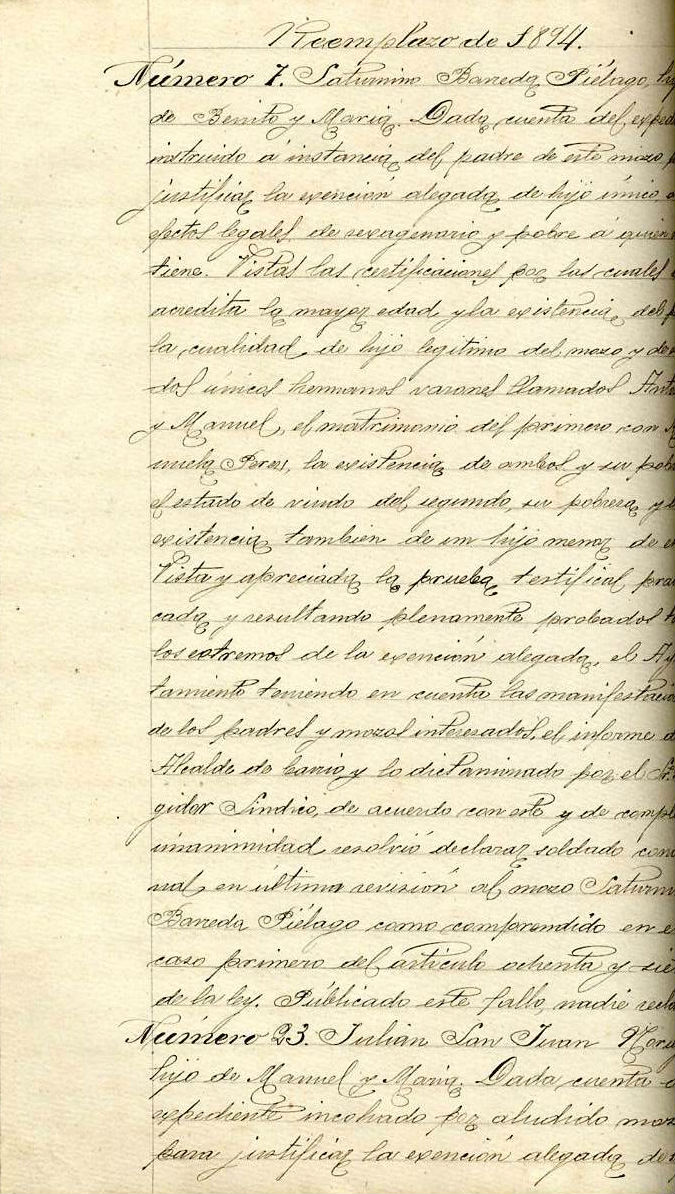 Reemplazo de 1894.
Número 7. Saturnino Bareda Piélago, hij
de Benito y María. Dada cuenta del exped
instruido á instancia del padre de este mozo p
justificar la exención alegada de hijo único á
efectos legales de sexagenario y pobre á quien
tiene. Vistas las certificaciones por las cuales
acredita la mayor edad y la existencia del p
la cualidad de hijo legitimo del mozo y de
dos únicos hermanos varones llamados Anto
y Manuel, el matrimonio del primero con M
nuela Perez, la existencia de ambos y su pobr
el estado de viudo del segundo, su pobreza y l
existencia tambien de un hijo menor de e
Vista y apreciada la prueba testifical prac
cada y resultando plenamente probados to
los extremos de la exención alegada, el Ay
tamiento teniendo en cuenta las manifestacio
de los padres y mozos interesados, el informe d
Alcalde de barrio y lo dictaminado por el Sr.
gidor Sindico, de acuerdo con este y de compl
unanimidad resolvió declarar soldado cond
nal en última revisión al mozo Saturni
Bareda Piélago como comprendido en e
caso primero del artículo ochenta y sie
de la ley. Públicado este fallo, nadie recla
Número 23. Julián San Juan
hijo de Manuel y María. Dada cuenta d
expediente incohado por aludido moz
para justificar la exención alegada de